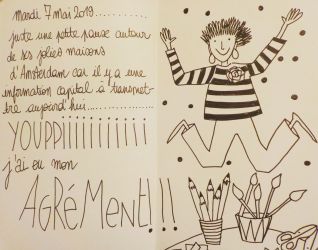 mardi 7 mai 2019..........
juste une petite pause autour
de ses jolies maisons
d'Amsterdam car il y a une
information capital à transmet-
tre aujourd'hui..............
YOUPPiiiiiiiiiiiii
j'ai eu mon
AGRÉMENT!!!